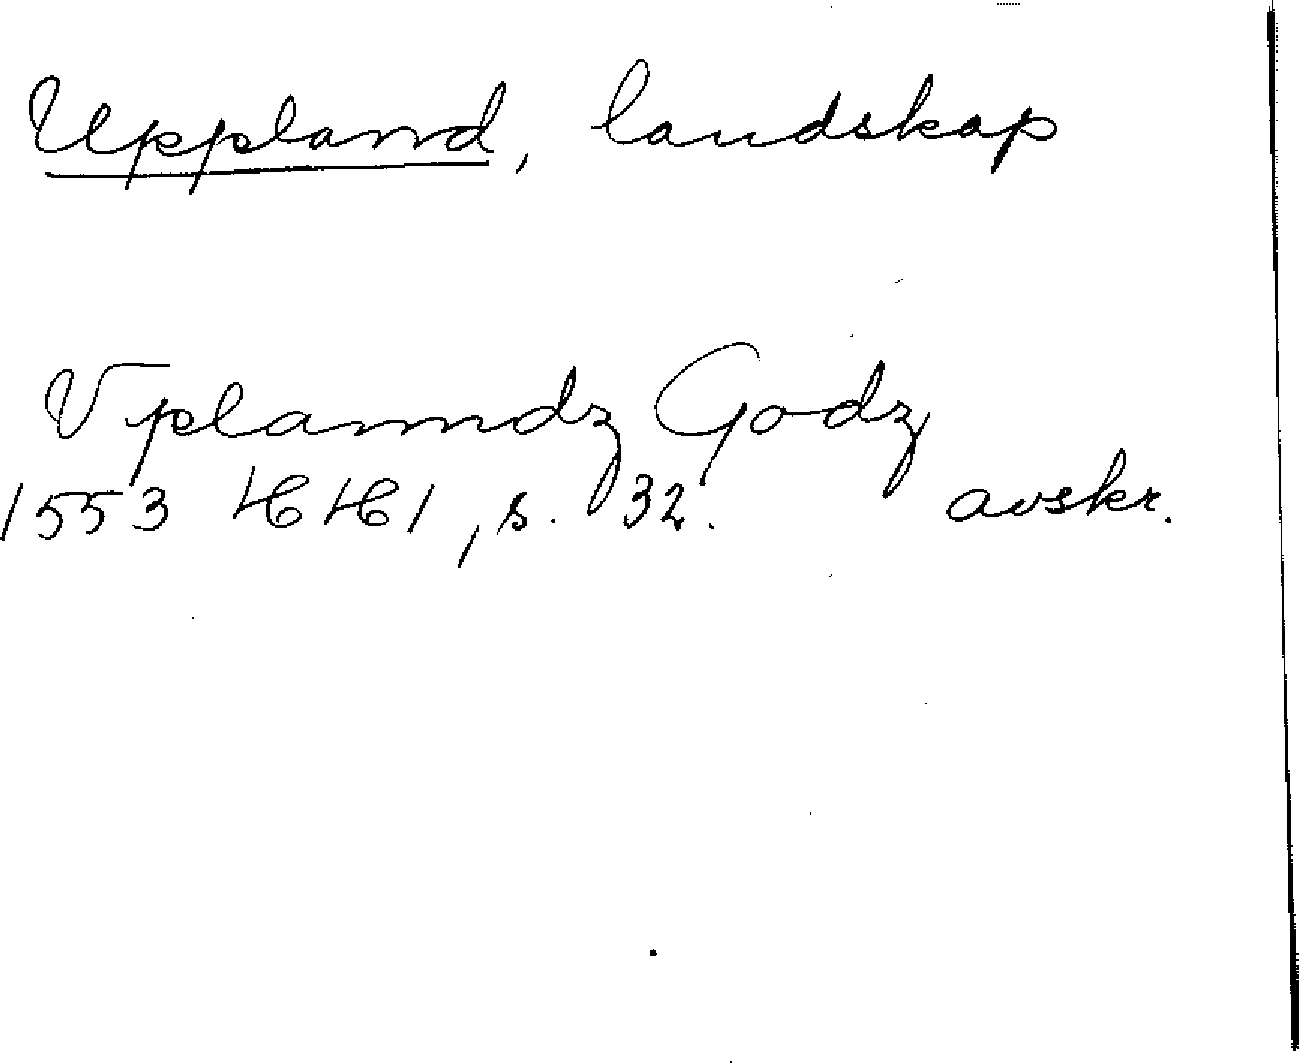 Uppland, landskap
Vplanndz Godz
1553 HH1, s. 32. avskr.